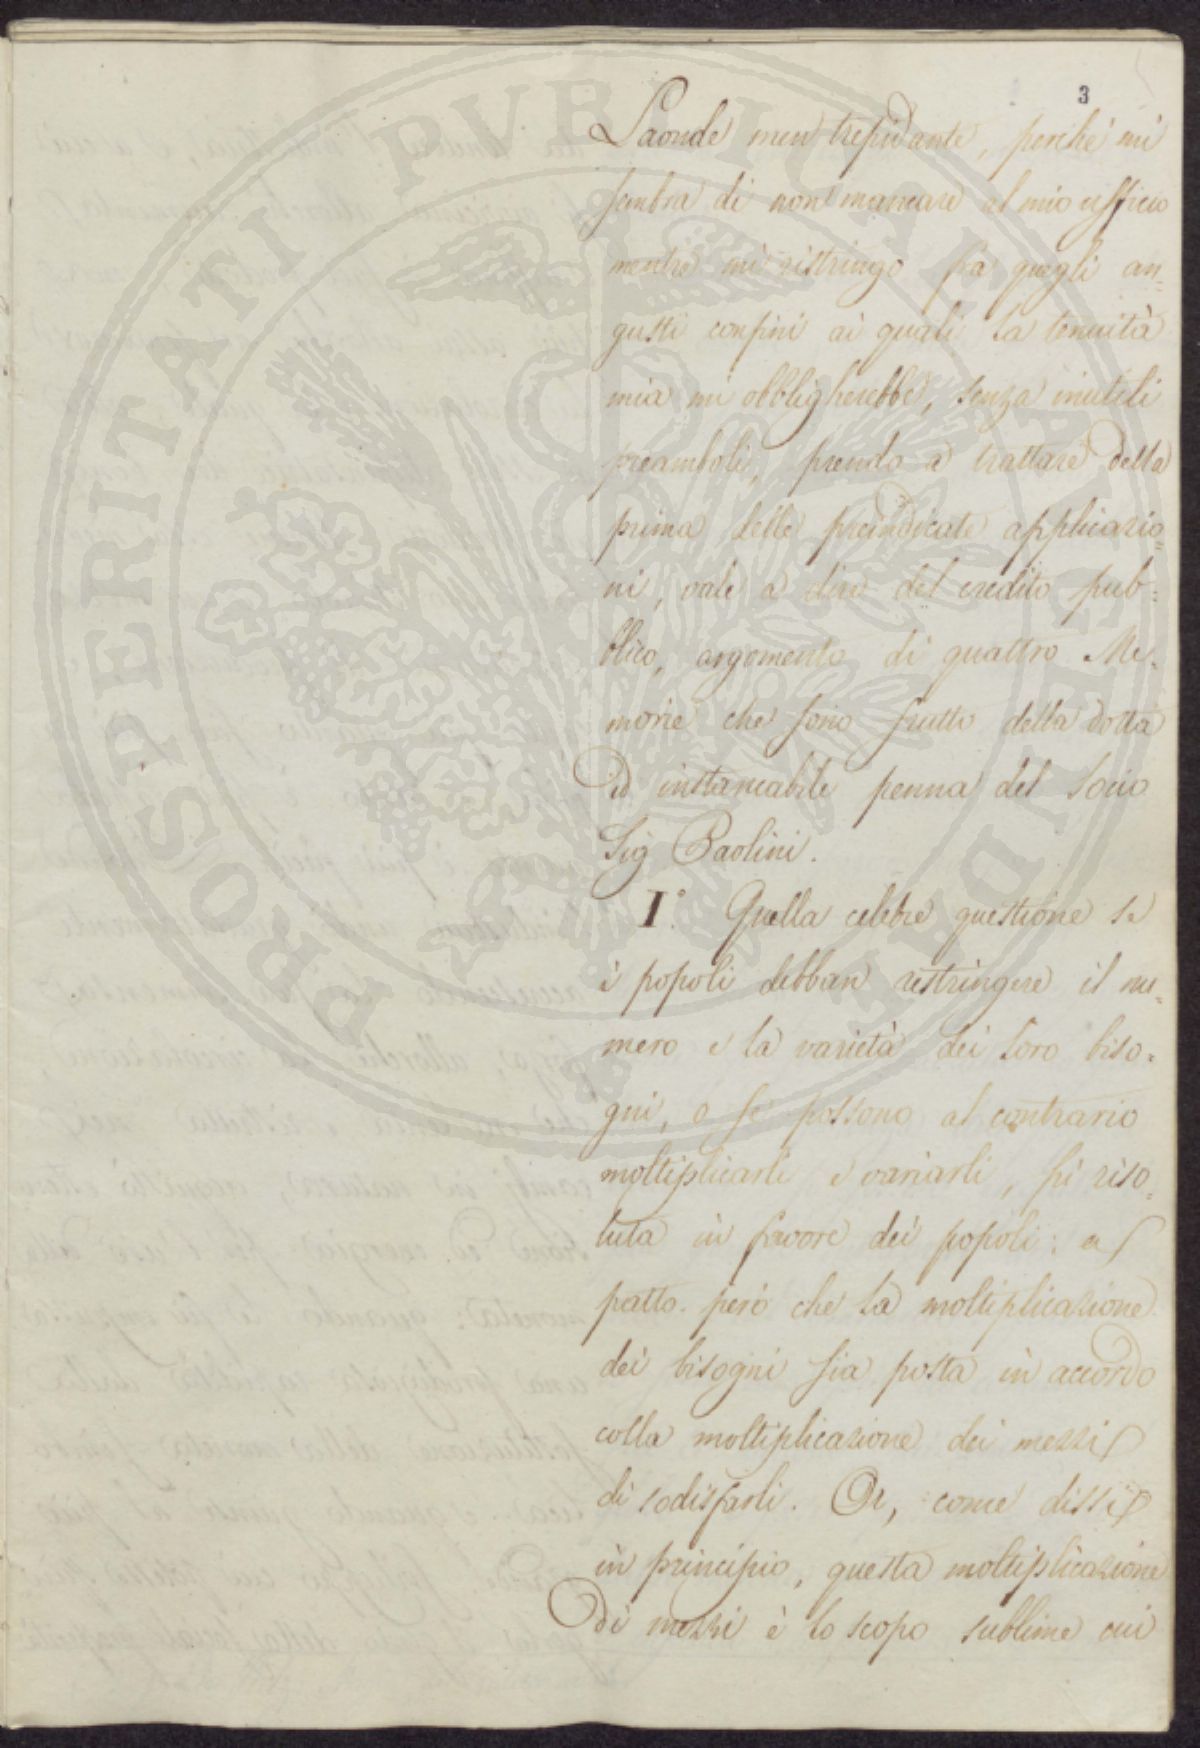 3
Laonde men trepidante, perchè mi
sembra di non mancare al mio ufficio
mentre mi ristringo fra quegli an-
gusti confini ai quali la tenuità
mia mi obbligherebbe, senza inutili
preamboli, prendo a trattare della
prima delle preindicate applicazio=
ni, vale a dire del credito pub=
blico, argomento di quattro Me-
morie che sono frutto della dotta
ed instancabile penna del Socio
Sig Paolini.
I.° Quella celebre questione se
i popoli debban restringere il nu-
mero e la varietà dei loro biso-
gni, o se possono al contrario
moltiplicarli e variarli, fù riso-
luta in favore dei popoli: a
patto però che la moltiplicazione
dei bisogni sia posta in accordo
colla moltiplicazione dei mezzi
di sodisfarli. Or, come dissi
in principio, questa moltiplicazione
di mezzi è lo scopo sublime cui
PROSPERITATI PVBLICAE AVGENDAE